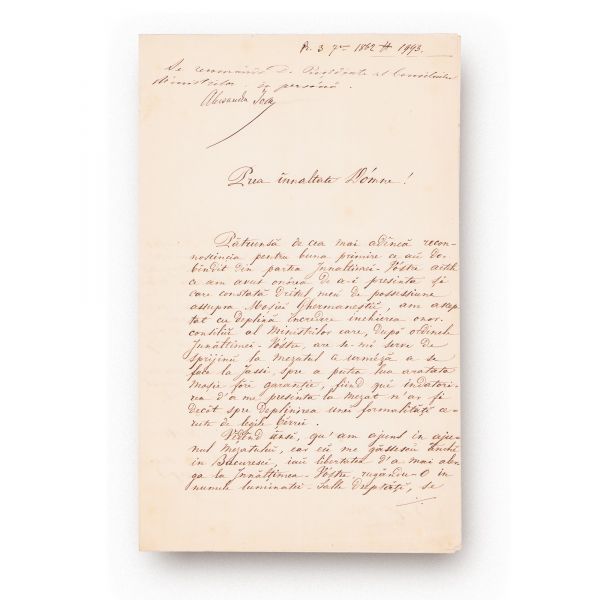 Pr. 3 7re 1862 # 1993.
Se recomandă D. President al Consiliului
Ministrilor, în persónă.
Alesandru Ioan
Prea înnaltate Dómne!
Pătrunsă de cea mai adîncă recon-
noscinția pentru buna primire ce au do-
bândit din partia Innaltimei-Vóstre actile
ce am avut onórea de a-i presinta și
care constată dritul meu de possessiune
assupra Moșiei Ghermanestii, am astep
tat cu deplină încredere închierea onor.
consiliu al Ministrilor care, după ordinele
Innăltimei-Vóstre, are se-mi serve de
sprijinu la mezatul ce urméză a se
face la Jassi, spre a putea lua arătata
moșie fórĕ garanție, fiind quĕ îndatori-
rea d'a me presinta la mezat n'ar fi
decît spre deplinirea unei formalități ce-
rute de legile țĕrrii.
Vĕḑînd ânsĕ, qu' am ajuns în aju-
nul Mezatului, ear eŭ me găssescu ânchĕ
în Bucuresci, iaŭ libertatea d'a mai aler-
ga la Innăltimea-Vóstre, rugându-O în
numele luminatei-Salle Dreptăți, se